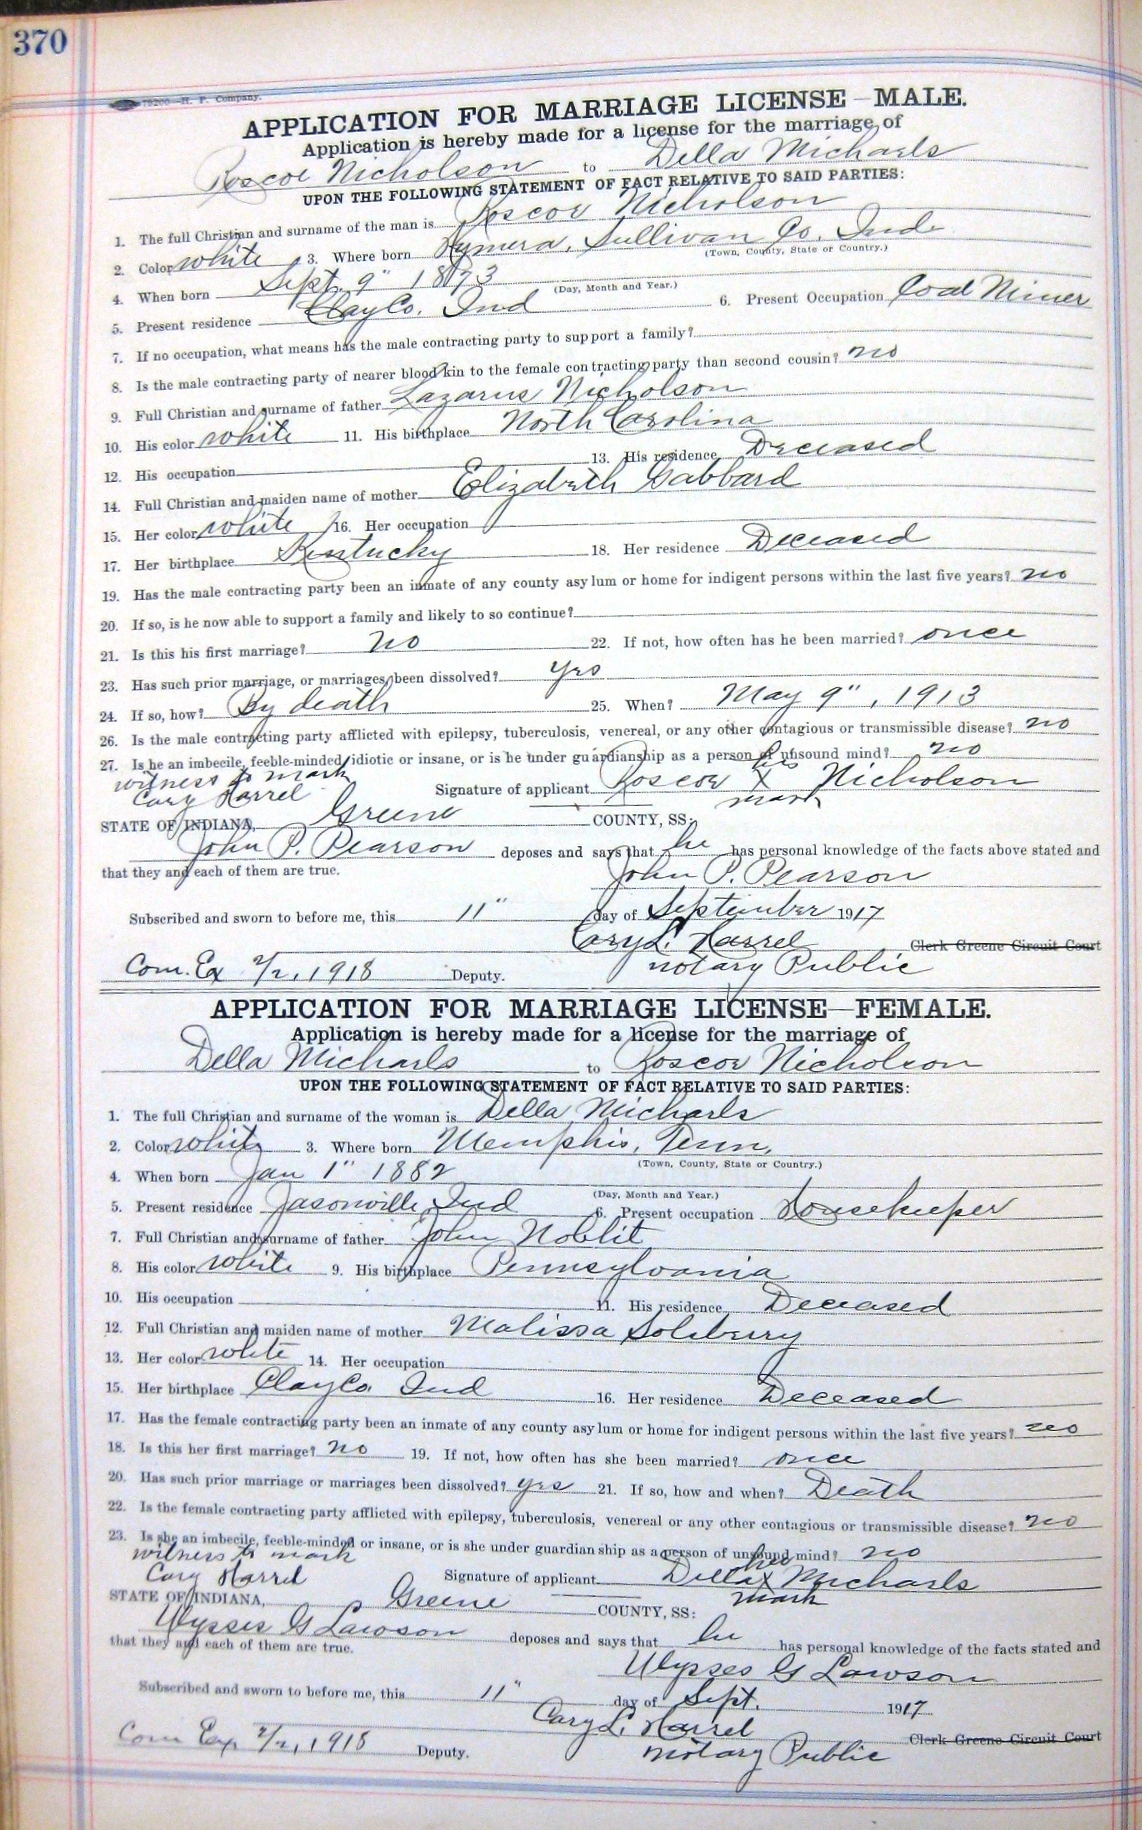 370
79200—H. P. Company.
APPLICATION FOR MARRIAGE LICENSE—MALE.
Application is hereby made for a license for the marriage of
Roscoe Nicholson to Della Michaels
UPON THE FOLLOWING STATEMENT OF FACT RELATIVE TO SAID PARTIES:
1. The full Christian and surname of the man is Roscoe Nicholson
2. Color white 3. Where born Hymera, Sullivan Co. Ind.
(Town, County, State or Country.)
4. When born Sept. 9" 1873
(Day, Month and Year.)
5. Present residence Clay Co. Ind 6. Present Occupation Coal Miner
7. If no occupation, what means has the male contracting party to support a family?
8. Is the male contracting party of nearer blood kin to the female contracting party than second cousin? no
9. Full Christian and surname of father Lazarus Nicholson
10. His color white 11. His birthplace North Carolina
12. His occupation 13. His residence Deceased
14. Full Christian and maiden name of mother Elizabeth Gabbard
15. Her color white 16. Her occupation
17. Her birthplace Kentucky 18. Her residence Deceased
19. Has the male contracting party been an inmate of any county asylum or home for indigent persons within the last five years? no
20. If so, is he now able to support a family and likely to so continue?
21. Is this his first marriage? no 22. If not, how often has he been married? once
23. Has such prior marriage, or marriages, been dissolved? yes
24. If so, how? By death 25. When? May 9", 1913
26. Is the male contracting party afflicted with epilepsy, tuberculosis, venereal, or any other contagious or transmissible disease? no
27. Is he an imbecile, feeble-minded, idiotic or insane, or is he under guardianship as a person of unsound mind? no
witness to mark his
Cary Harrel Signature of applicant Roscoe X Nicholson
mark
STATE OF INDIANA, Greene COUNTY, SS:
John P. Pearson deposes and says that he has personal knowledge of the facts above stated and
that they and each of them are true. John P. Pearson
Subscribed and sworn to before me, this 11" day of September 1917
Cary L. Harrel Clerk Greene Circuit Court
Com. Ex 2/2, 1918 Deputy. notary Public
APPLICATION FOR MARRIAGE LICENSE—FEMALE.
Application is hereby made for a license for the marriage of
Della Michaels to Roscoe Nicholson
UPON THE FOLLOWING STATEMENT OF FACT RELATIVE TO SAID PARTIES:
1. The full Christian and surname of the woman is Della Michaels
2. Color white 3. Where born Memphis, Tenn,
(Town, County, State or Country.)
4. When born Jan 1" 1882
(Day, Month and Year.)
5. Present residence Jasonville Ind 6. Present occupation Housekeeper
7. Full Christian and surname of father John Noblit
8. His color white 9. His birthplace Pennsylvania
10. His occupation 11. His residence Deceased
12. Full Christian and maiden name of mother Malissa Solsberry
13. Her color white 14. Her occupation
15. Her birthplace Clay Co Ind 16. Her residence Deceased
17. Has the female contracting party been an inmate of any county asylum or home for indigent persons within the last five years? no
18. Is this her first marriage? no 19. If not, how often has she been married? once
20. Has such prior marriage or marriages been dissolved? yes 21. If so, how and when? Death
22. Is the female contracting party afflicted with epilepsy, tuberculosis, venereal or any other contagious or transmissible disease? no
23. Is she an imbecile, feeble-minded or insane, or is she under guardianship as a person of unsound mind? no
witness to mark her
Cary Harrel Signature of applicant Della X Michaels
mark
STATE OF INDIANA, Greene COUNTY, SS:
Ulysses G Lawson deposes and says that he has personal knowledge of the facts stated and
that they and each of them are true. Ulysses G Lawson
Subscribed and sworn to before me, this 11" day of Sept. 1917
Cary L. Harrel Clerk Greene Circuit Court
Com Exp 2/2, 1918 Deputy. notary Public